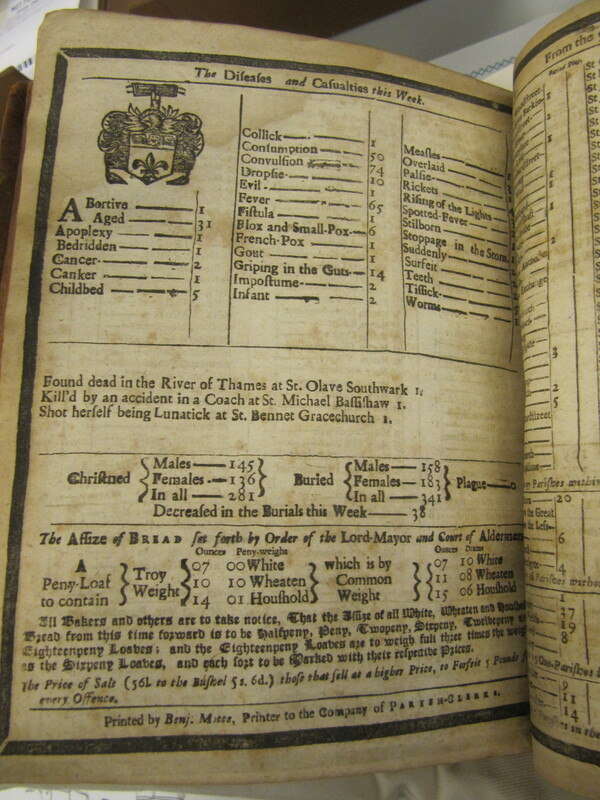 The Diseases and Casualties this Week.
Abortive 1
Aged 31
Apoplexy 1
Bedridden 1
Cancer 2
Canker 1
Childbed 5
Collick 1
Consumption 50
Convulsion 74
Dropsie 10
Evil 1
Fever 65
Fistula 1
Flox and Small-Pox 6
French-Pox 1
Gout 1
Griping in the Guts 14
Impostume 2
Infant 2
Measles
Overlaid
Palsie
Rickets
Rising of the Lights
Spotted-Fever
Stilborn
Stoppage in the Stom.
Suddenly
Surfeit
Teeth
Tissick
Worms
Found dead in the River of Thames at St. Olave Southwark 1.
Kill'd by an accident in a Coach at St. Michael Bassishaw 1.
Shot herself being Lunatick at St. Bennet Gracechurch 1.
Christned Males 145 Females 136 In all 281 Buried Males 158 Females 183 In all 341 Plague 0
Decreased in the Burials this Week 38
The Assize of BREAD set forth by Order of the Lord-Mayor and Court of Aldermen
Ounces Peny-weight Ounces Drams
A Peny-Loaf to contain Troy Weight 07 00 White which is by Common Weight 07 10 White
10 10 Wheaten 11 08 Wheaten
14 01 Houshold 15 06 Houshold
All Bakers and others are to take notice, That the Assize of all White, Wheaten and Houshold
Bread from this time forward is to be Halfpeny, Peny, Twopeny, Sixpeny, Twelvepeny
Eighteenpeny Loaves; and the Eighteenpeny Loaves are to weigh full three times the weight
as the Sixpeny Loaves, and each sort to be Marked with their respective Prices.
The Price of Salt (56l. to the Bushel 5s. 6d.) those that sell at a higher Price, to Forfeit 5 Pounds
every Offence.
Printed by Benj. Motte, Printer to the Company of PARISH-CLERKS.
From the